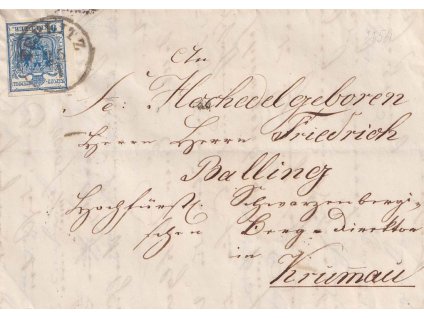 An
Se: Hochedelgeboren
Herrn Herrn Friedrich
Balling
Hochfürstl: Schwarzenbergi-
schen Berg-Direktor
in
Krumau